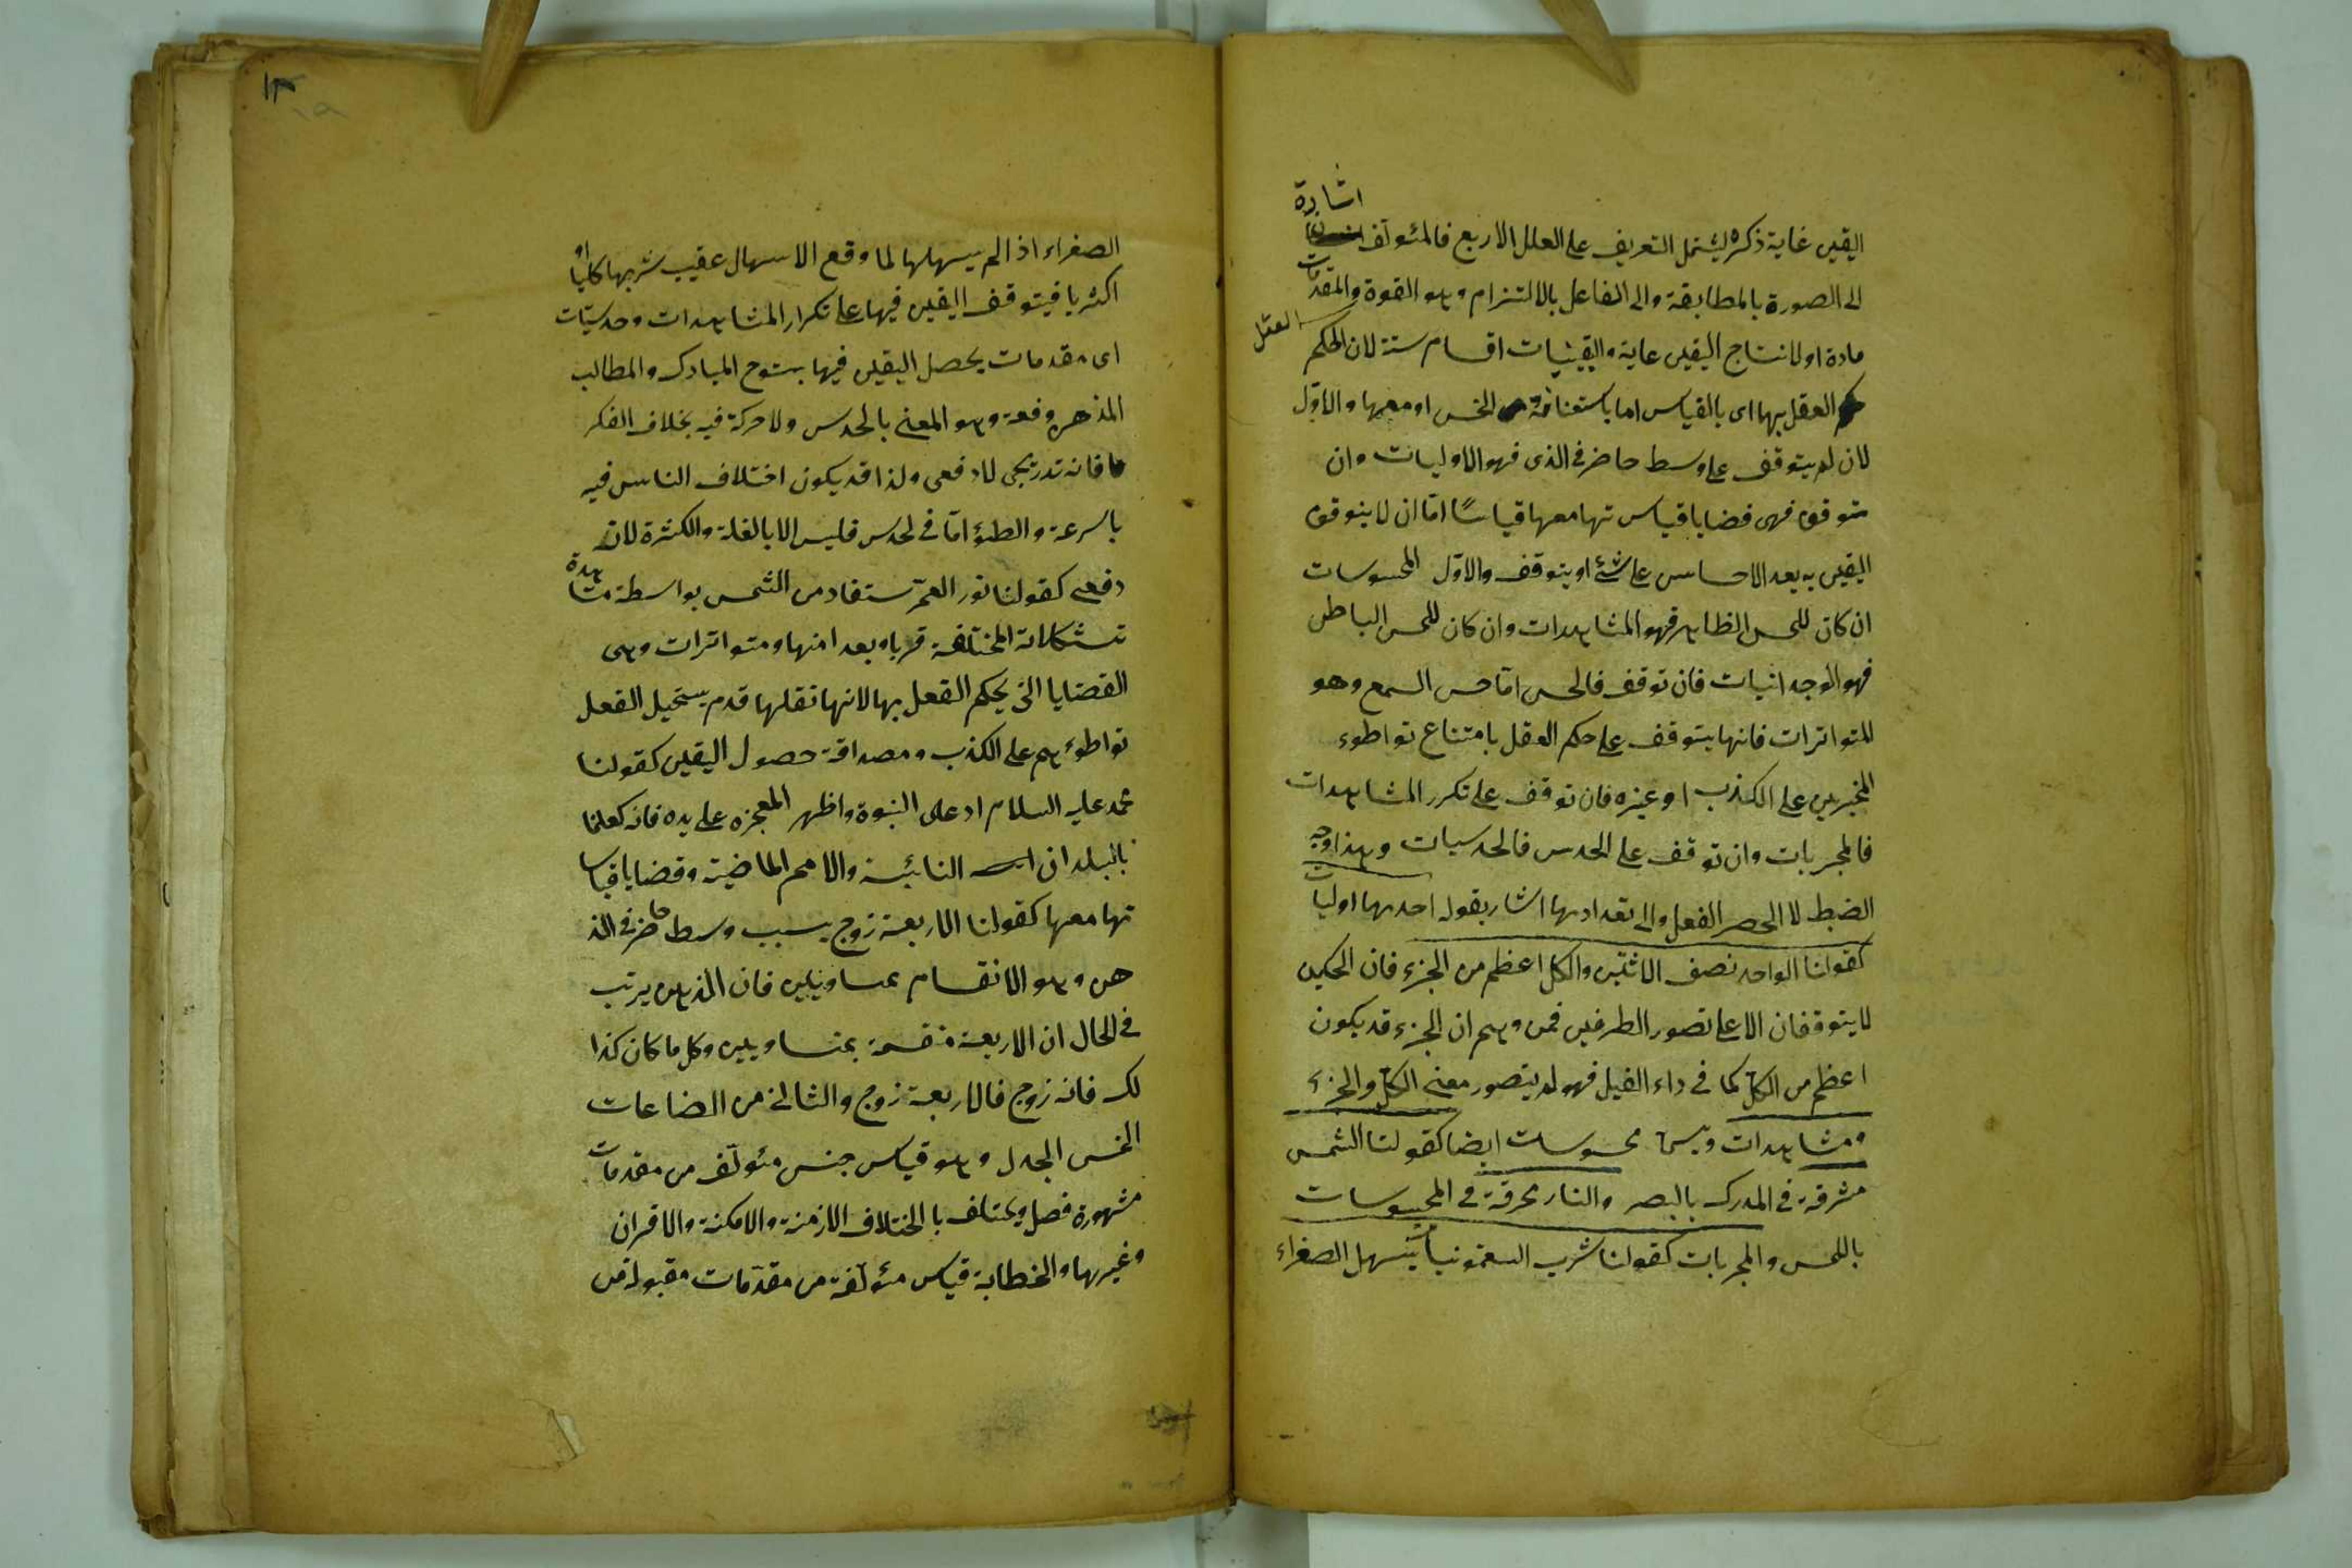 اليقين غاية ذكره ليشتمل التعريف على العلل الاربع فالمئولف اشارة
الى الصورة بالمطابقة والى الفاعل بالالتزام وهو القوة والمقدمات
مادة اولا نتاج اليقين غاية واليقينيات اقسام ستة لان الحكم العقل
العقل بها اى بالقياس اما باستعانة الحس او معها والاول
لان لم يتوقف على وسط حاضر فى الذى فهو الاوليات وان
متوقف فهى قضايا قياس تها معها قياسًا امّا ان لا يتوقف
اليقين به بعد الاحساس على شئ او يتوقف والاول المحسوسات
ان كان للحس الظاهر فهو المشاهدات وان كان للحس الباطن
فهو الوجدانيات فان توقف فالحس امّا حس السمع وهو
المتواترات فانها يتوقف على حكم العقل بامتناع تواطوء
المخبرين على الكذب او غيره فان توقف على تكرر المشاهدات
فالمجربات وان توقف على الحدس فالحدسيات وهذا وجه
الضبط لا الحصر الفعل والى تعدادها اشار بقوله احدها اوليات
كقولنا الواحد نصف الاثنين والكل اعظم من الجزء فان الحكمين
لا يتوقفان الا على تصور الطرفين فمن وهم ان الجزء قد يكون
اعظم من الكل كما فى داء الفيل فهو لم يتصور معنى الكل والجزء
ومشاهدات ويسمى محسوسات ايضا كقولنا الشمس
مشرقة فى المدرك بالبصر والنار محرقة فى المحسوسات
باللمس والمجربات كقولنا شرب السقمونيا يسهل الصفراء
١٣
١٥
الصفراء اذ الم يسهلها لما وقع الاسهال عقيب شربها كليا او
اكثريا فيتوقف اليقين فيها على تكرار المشاهدات وحدسيّات
اى مقدمات يحصل اليقين فيها بسنوح المبادى والمطالب
المذهن دفعة وهو المعنى بالحدس ولا حركة فيه بخلاف الفكر
فانه تدريجى لا دفعى ولذا قد يكون اختلاف الناس فيه
بالسرعة والطؤ امّا فى لحدس فليس الا بالقلة والكثرة لانه
دفعى كقولنا نور القمر مستفاد من الشمس بواسطة مشاهدة
تشكلاته المختلفة قربا وبعدا منها ومتواترات وهى
القضايا التى يحكم القعل بها لانها نقلها قدم يستحيل القعل
تواطوءهم على الكذب ومصداقة حصول اليقين كقولنا
محمد عليه السلام ادعى النبوة واظهر المعجزه على يده فانه كعلمنا
بالبلدان النائية والامم الماضية وقضايا قياسا
تها معها كقولنا الاربعة زوج بسبب وسط حاضر فى الذ
هن وهو الانقسام بمساويين فان الذهن يرتب
فى الحال ان الاربعة منقسمة بمتساويين وكل ما كان كذا
لك فانه زوج فالاربعة زوج والثانى من الصناعات
الخمس الجدل وهو قياس جنس مئولف من مقدمات
مشهورة فصل ويختلف باالختلاف الازمنة والامكنة والاقران
وغيرها والخطابة قياس مئولفة من مقدّمات مقبولة من